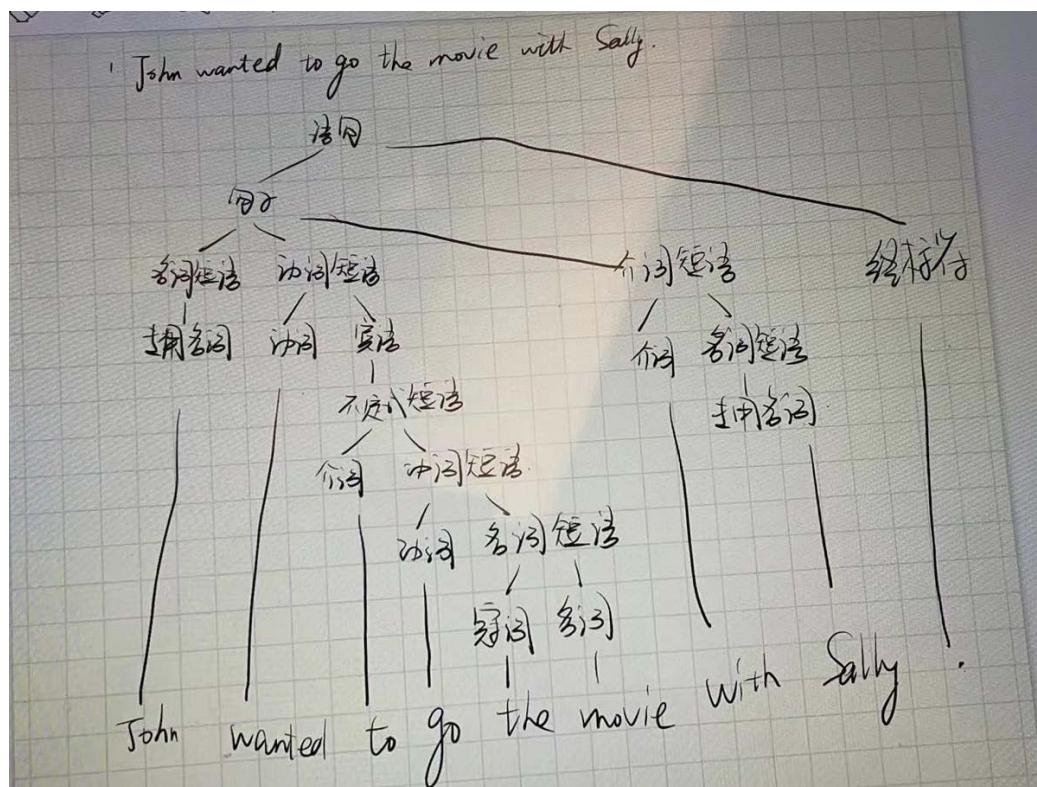 John wanted to go the movie with Sally.
语句
句子
名词短语 动词短语 介词短语 终标符
专用名词 动词 宾语 介词 名词短语
不定式短语 专用名词
介词 动词短语
动词 名词短语
冠词 名词
John wanted to go the movie with Sally .